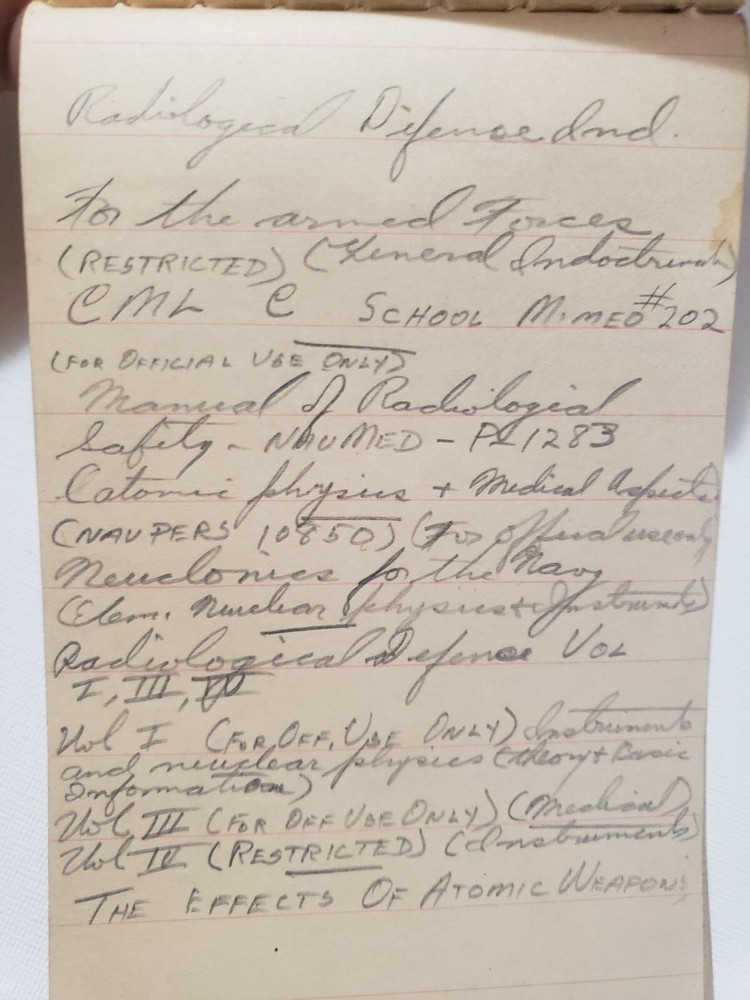 Radiological Defense Ind.
For the armed Forces
(RESTRICTED) (General Indoctrination)
CML C SCHOOL MIMEO #202
(FOR OFFICIAL USE ONLY)
Manual of Radiological
Safety - NAVMED - P-1283
(atomic physics + Medical Aspects)
(NAVPERS 10850) (For offical use only)
Neuclonics for the Navy
(Elem. Nuclear physics + Instruments)
Radiological Defense VOL
I, III, IV
Vol I (FOR OFF, USE ONLY) Instruments
and neuclear physics (theory + Basic
Information)
Vol III (FOR OFF USE ONLY) (Medical)
Vol IV (RESTRICTED) (Instruments)
THE EFFECTS OF ATOMIC WEAPONS